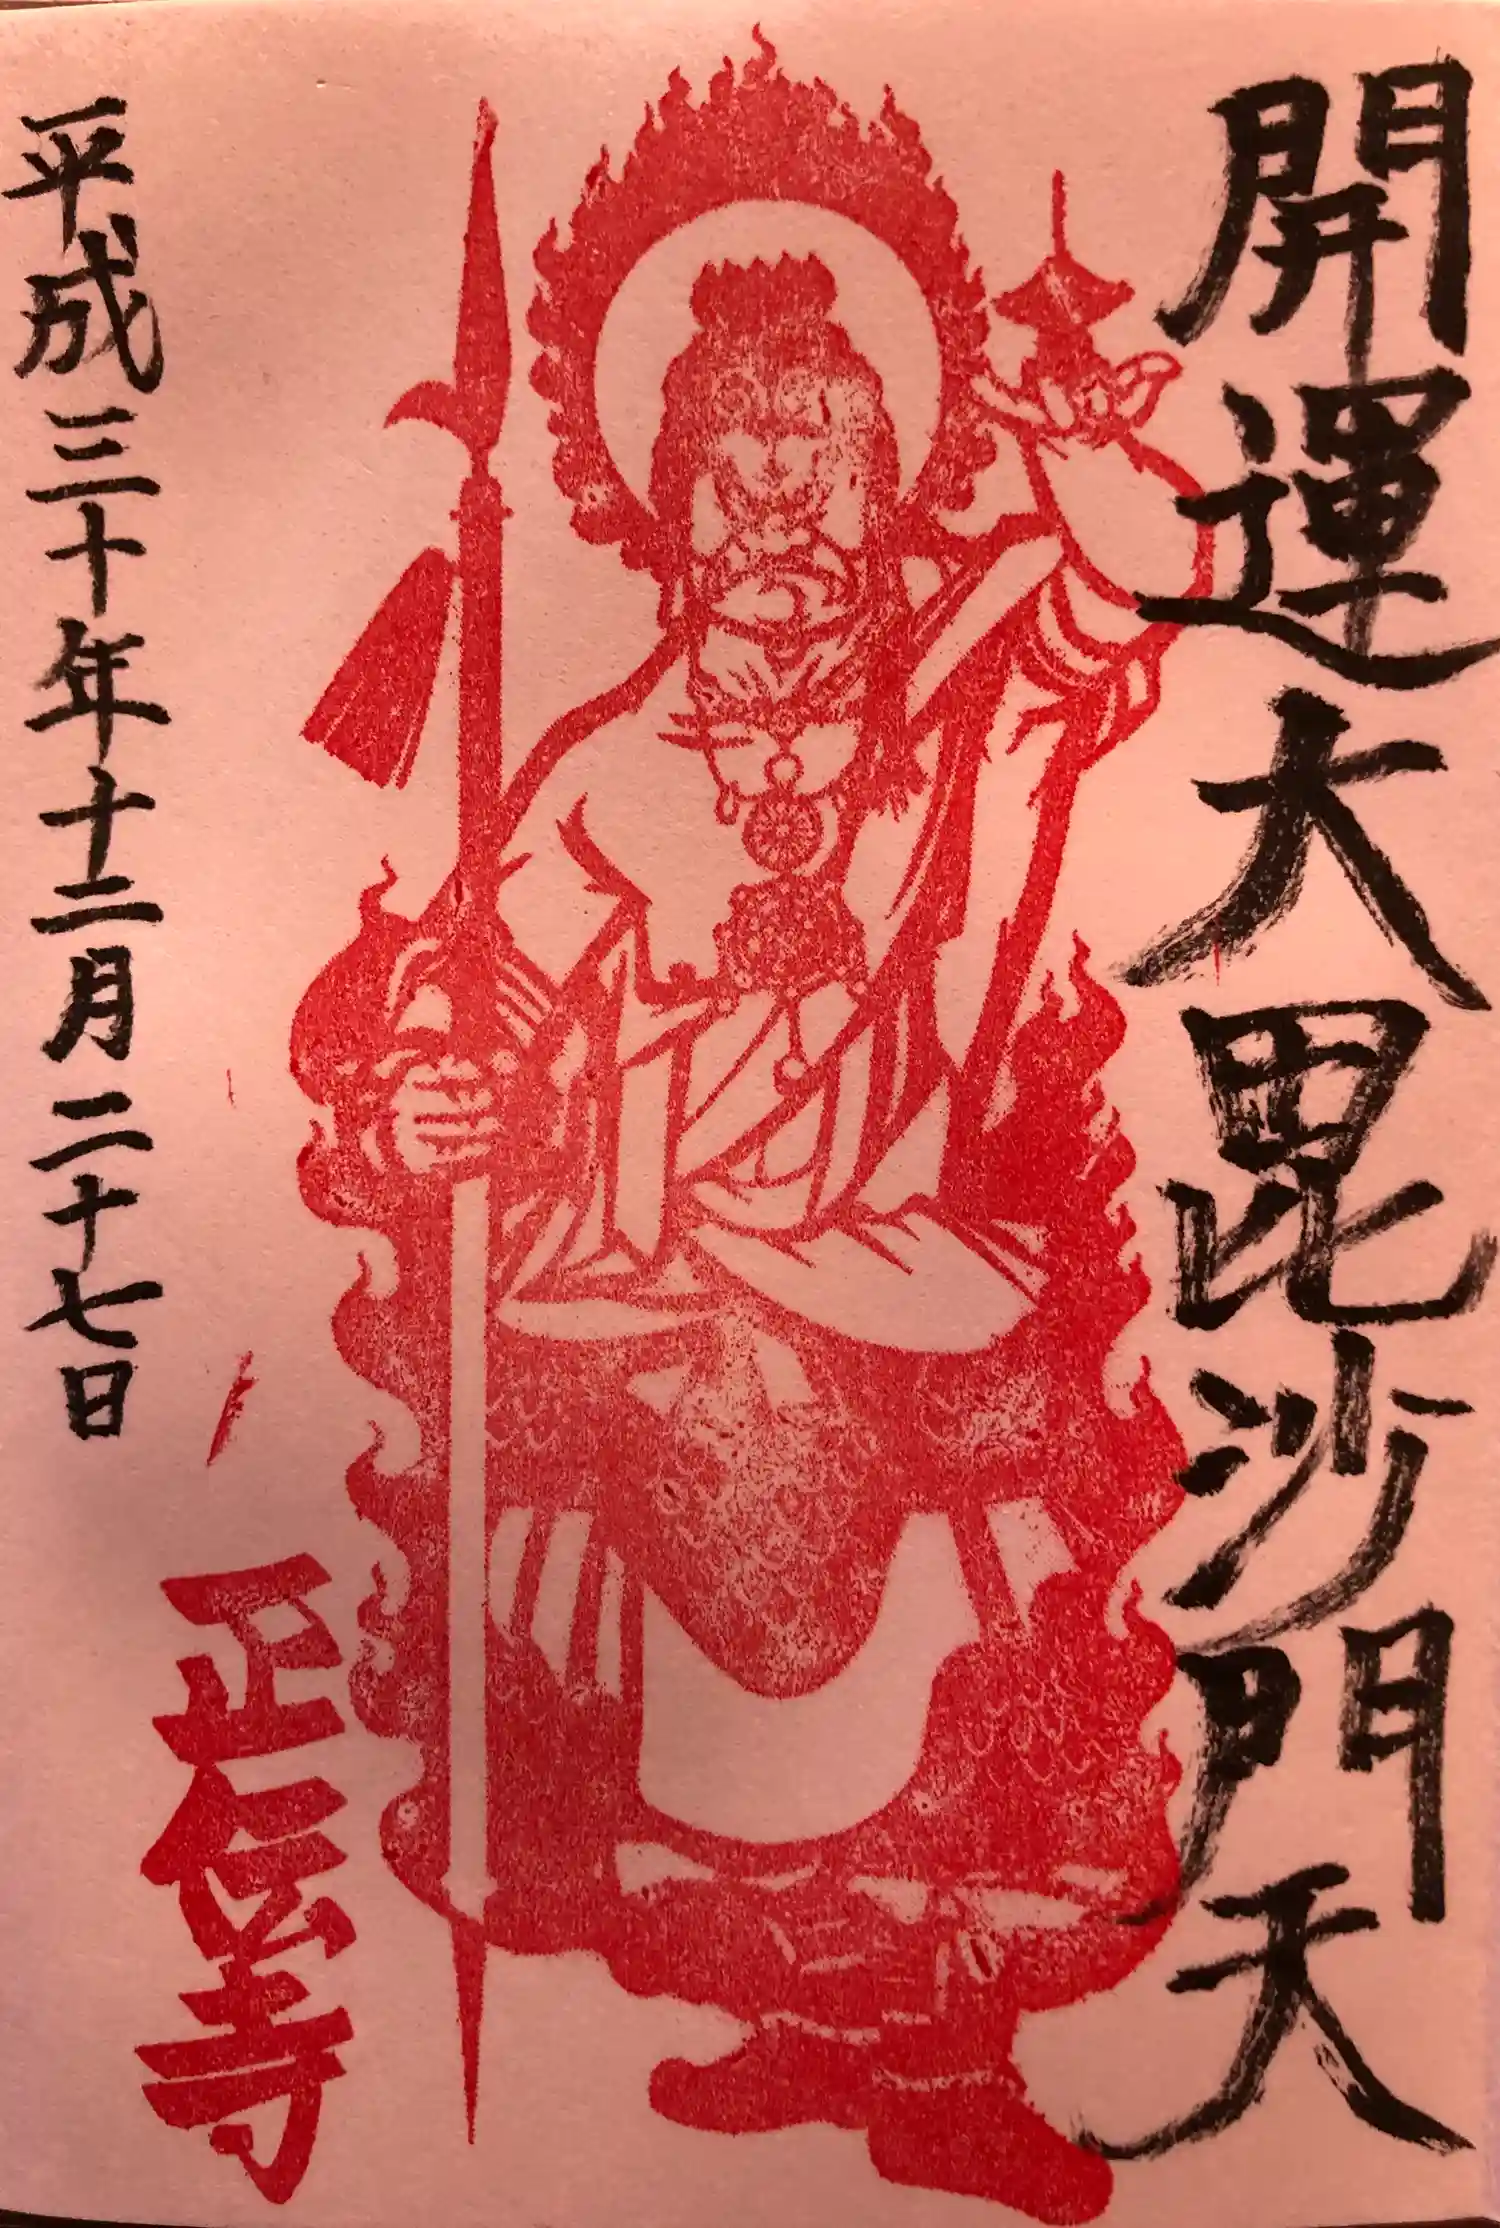 開運大毘沙門天
平成三十年十二月二十七日
正伝寺